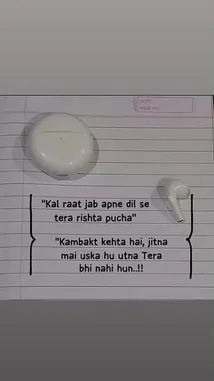 "Kal raat jab apne dil se
tera rishta pucha"
"Kambakt kehta hai, jitna
mai uska hu utna Tera
bhi nahi hun..!!